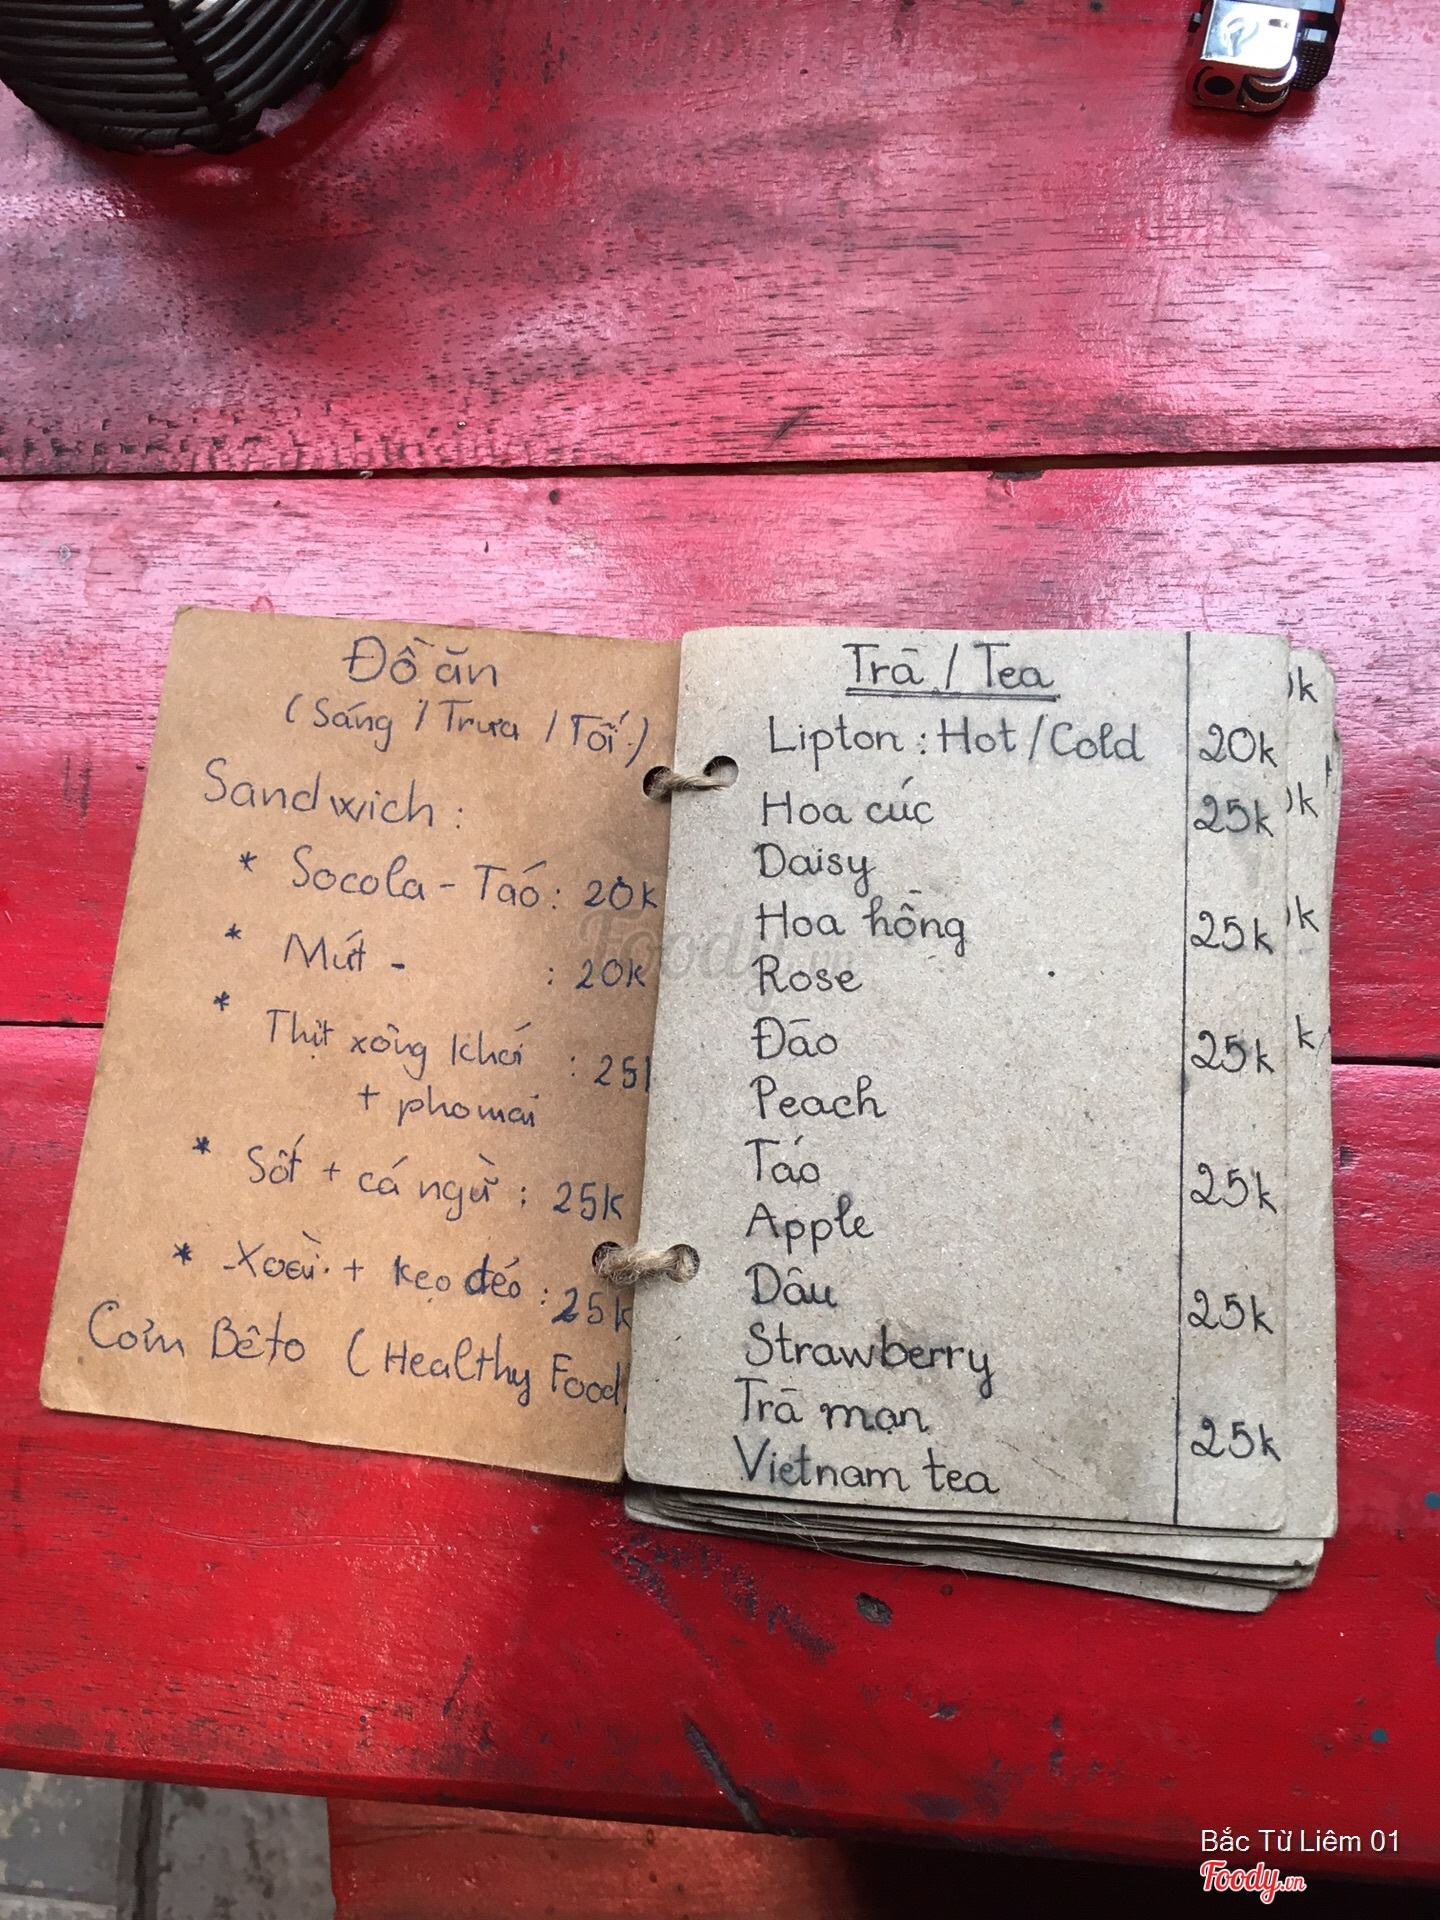 Đồ ăn
(Sáng / Trưa / Tối)
Sandwich :
* Socola - Táo : 20k
* Mứt - : 20k
* Thịt xông khói : 25k
+ phomai
* Sốt + cá ngừ : 25k
* Xoài + kẹo dẻo : 25k
Cơm Bêto (Healthy Food
Trà / Tea
Lipton : Hot / Cold 20k
Hoa cúc 25k
Daisy
Hoa hồng 25k
Rose
Đào 25k
Peach
Táo 25k
Apple
Dâu 25k
Strawberry
Trà mạn 25k
Vietnam tea
k
k
k
k
Foody.vn
Bắc Từ Liêm 01
Foody.vn